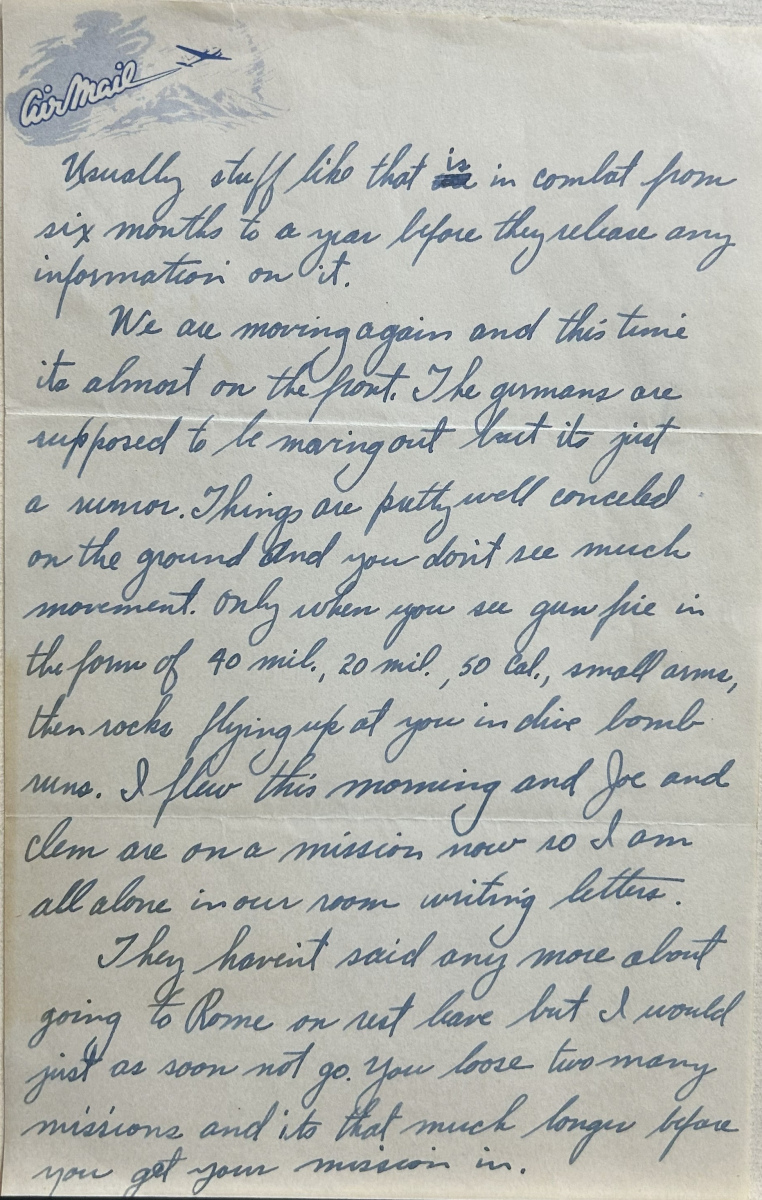 Air Mail
Usually stuff like that is in combat from
six months to a year before they release any
information on it.
We are moving again and this time
its almost on the front. The germans are
supposed to be moving out but its just
a rumor. Things are putty well conceled
on the ground and you don't see much
movement. Only when you see gun fire in
the form of 40 mil., 20 mil., 50 Cal., small arms,
then rocks flying up at you in dive bomb
runs. I flew this morning and Joe and
Clem are on a mission now so I am
all alone in our room writing letters.
They haven't said any more about
going to Rome on rest leave but I would
just as soon not go. You loose two many
missions and its that much longer before
you get your mission in.